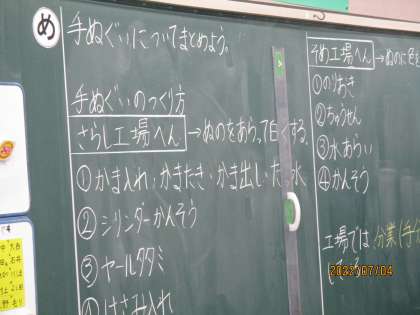 め
手ぬぐいについてまとめよう。
手ぬぐいのつくり方
さらし工場へん→ぬのをあらって白くする。
①かま入れ・かまたき・かま出し・だっ水
②シリンダーかんそう
③ヤールタタミ
④はさみ入れ
そめ工場へん→ぬのに色を
①のりおき
②ちゅうせん
③水あらい
④かんそう
工場では分業(手分
2022/07/04